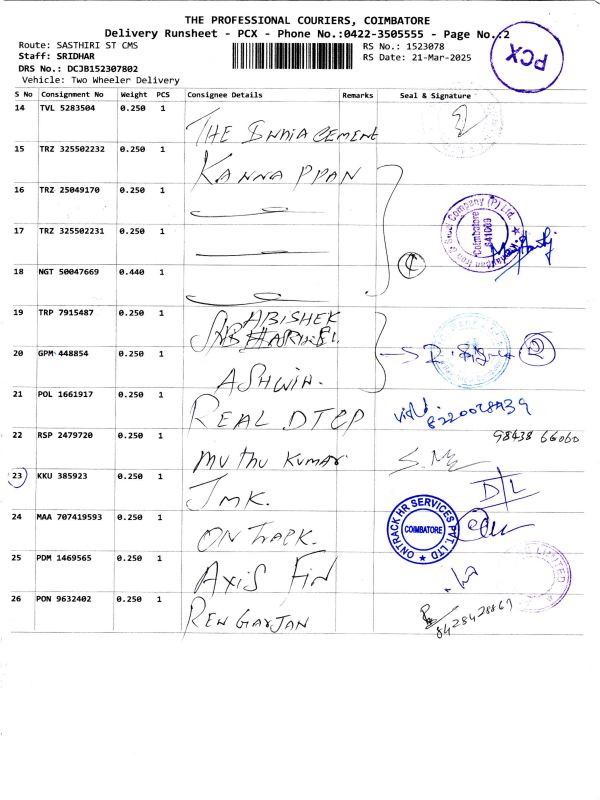 THE PROFESSIONAL COURIERS, COIMBATORE
Delivery Runsheet - PCX - Phone No.:0422-3505555 - Page No.:2
PCX
Route: SASTHIRI ST CMS
RS No.: 1523078
Staff: SRIDHAR
RS Date: 21-Mar-2025
DRS No.: DCJB152307802
Vehicle: Two Wheeler Delivery
S No Consignment No Weight PCS Consignee Details Remarks Seal & Signature
14 TVL 5283504 0.250 1 THE INDIA CEMENT
15 TRZ 325502232 0.250 1 KANNAPPAN
16 TRZ 25049170 0.250 1
17 TRZ 325502231 0.250 1
Company (P) Ltd. Coimbatore
18 NGT 50047669 0.440 1
19 TRP 7915487 0.250 1 ABISHEK
20 GPM 448854 0.250 1 ASHWIN.
21 POL 1661917 0.250 1 REAL DTCP
22 RSP 2479720 0.250 1 MUTHU KUMAR
98438 66060
23 KKU 385923 0.250 1 JMK.
D/L
24 MAA 707419593 0.250 1 ON TRACK.
ONTRACK HR SERVICES PVT. LTD COIMBATORE
25 PDM 1469565 0.250 1 AXIS FIN
LIMITED
26 PON 9632402 0.250 1
8428428869